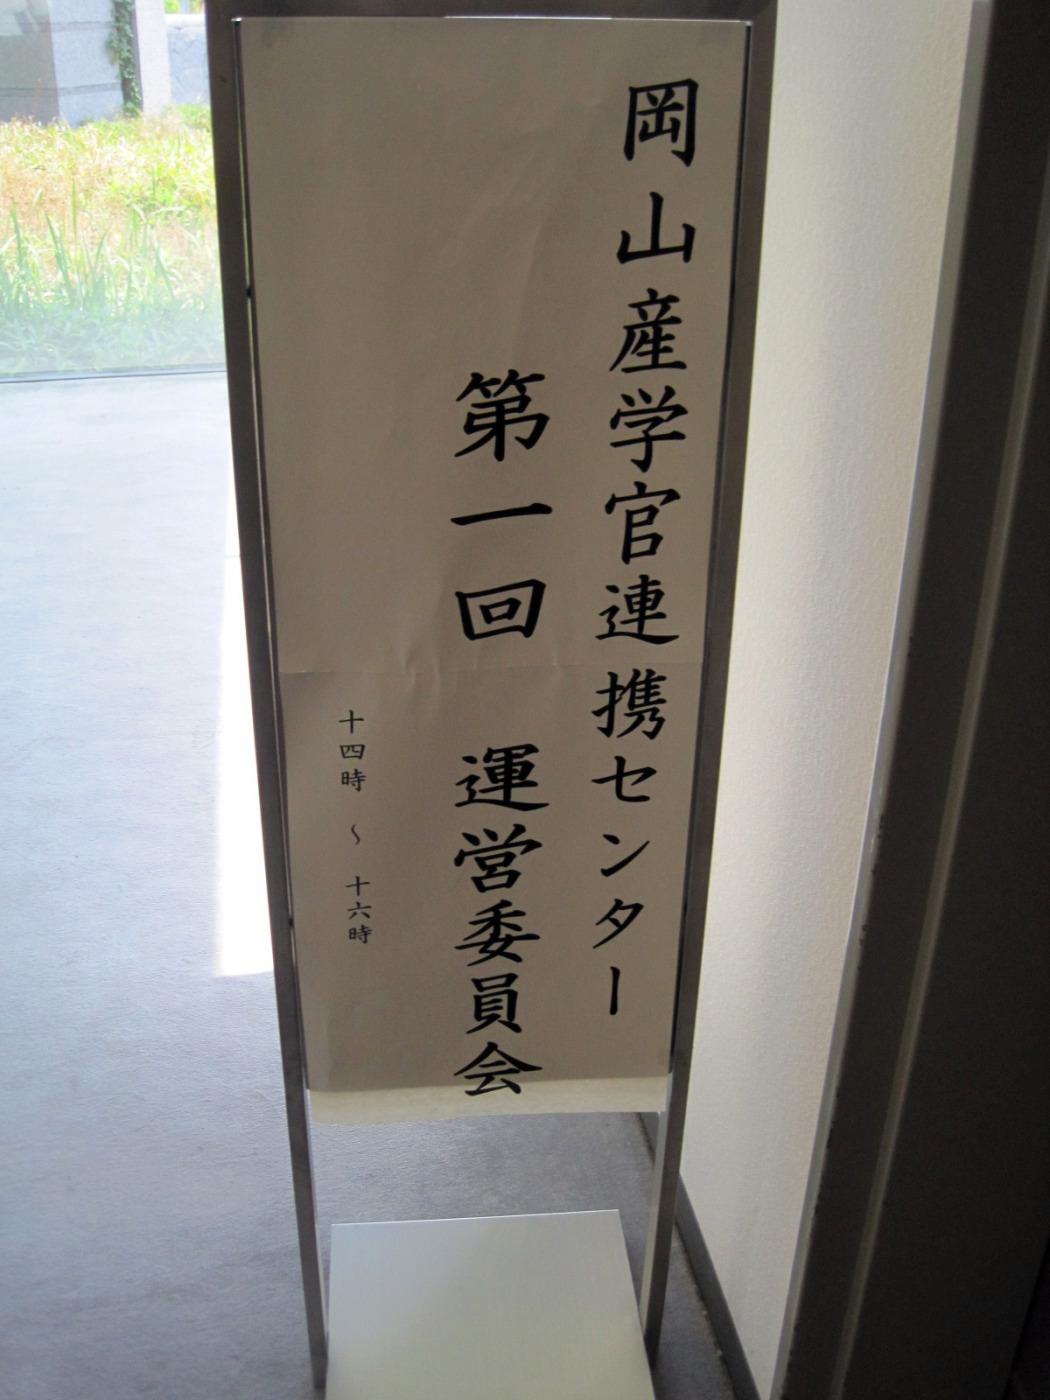 岡山産学官連携センター
第一回 運営委員会
十四時 ～ 十六時